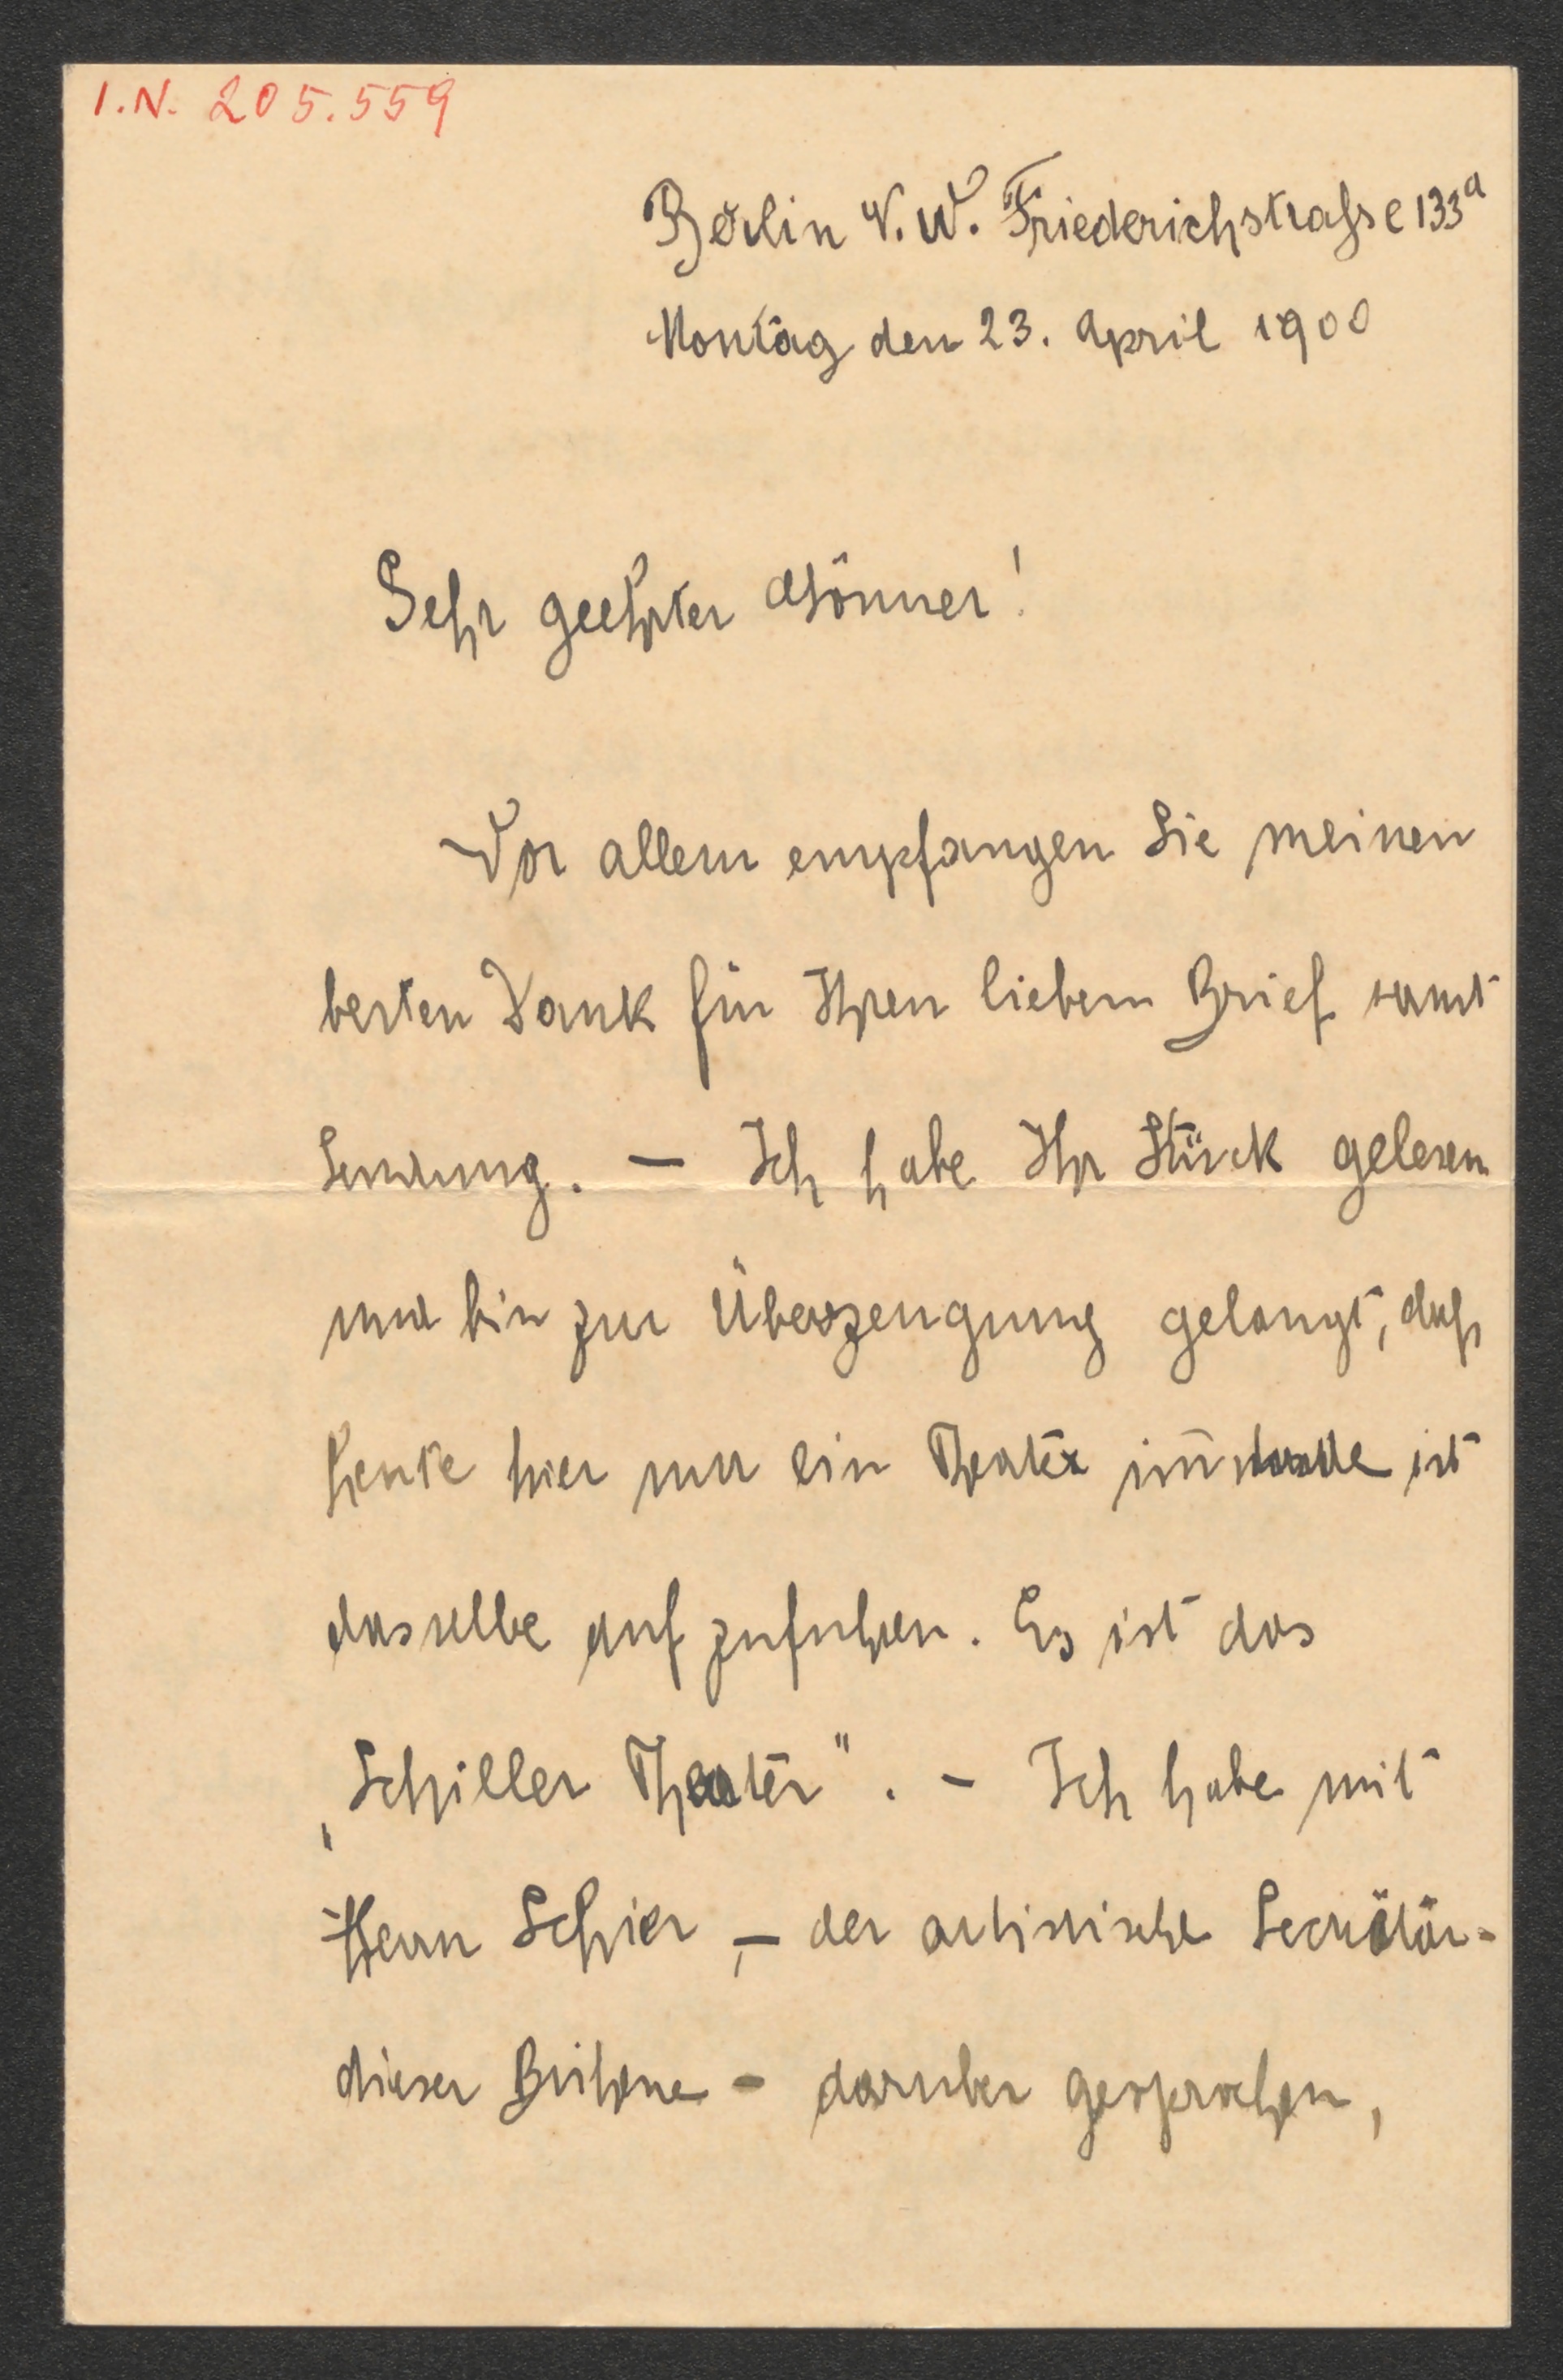 I.N. 205.559
Berlin N.W. Friederichstraße 133a
Montag den 23. April 1900
Sehr geehrter Gönner!
Vor allem empfangen Sie meinen
besten Dank für Ihren lieben Brief samt
Sendung. — Ich habe Ihr Stück gelesen
und bin zur Überzeugung gelangt, daß
heute hier nur ein Theater im stande ist
dasselbe aufzufuhren. Es ist das
„Schiller Theater". - Ich habe mit
Herrn Schier, — der artistische Secretär -
dieser Bühne - daruber gesprochen,